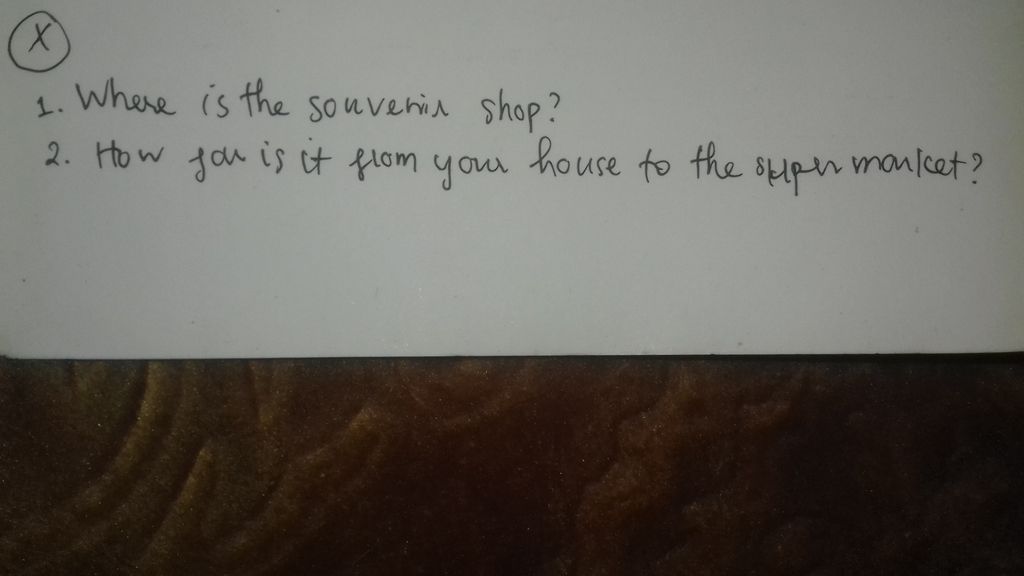 X
1. Where is the souvenir shop?
2. How far is it from your house to the supermarket?